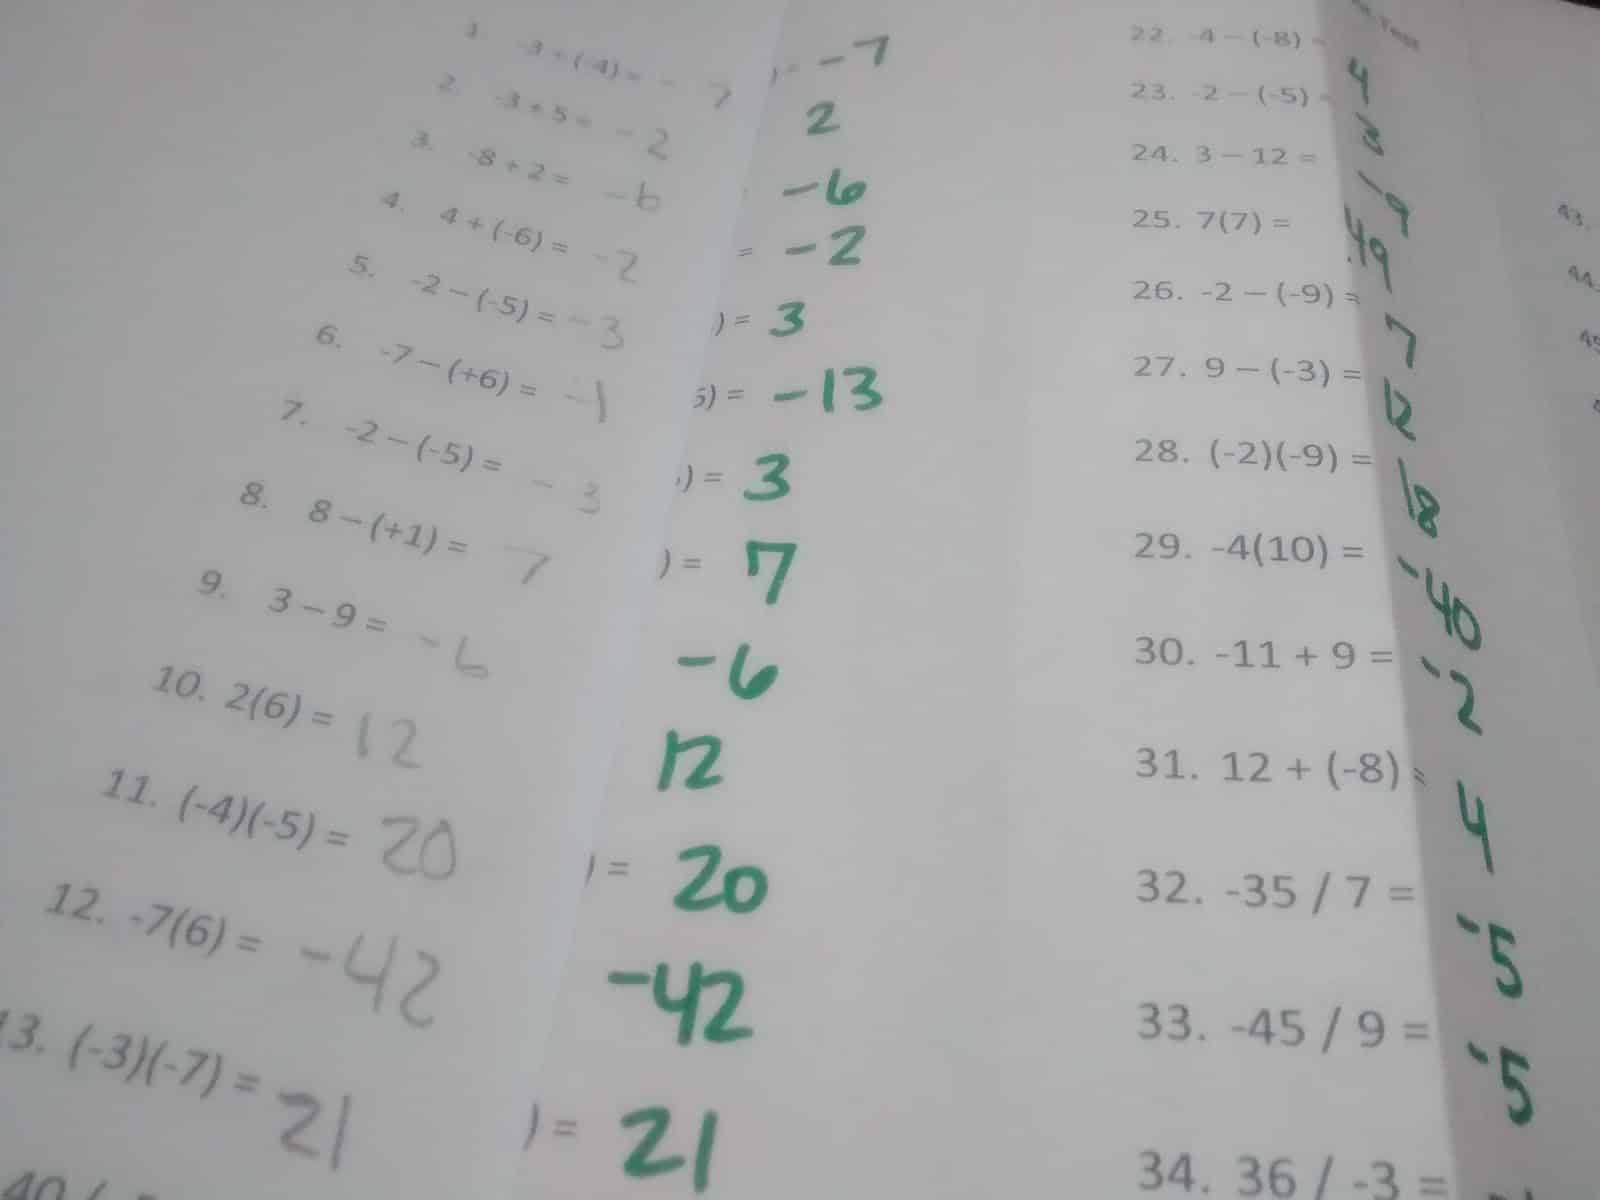 1. -3 + (-4) = - 7
2. -3 + 5 = - 2
3. -8 + 2 = -6
4. 4 + (-6) = -2
5. -2 – (-5) = -3
6. -7 – (+6) = -1
7. -2 – (-5) = - 3
8. 8 – (+1) = 7
9. 3 – 9 = -6
10. 2(6) = 12
11. (-4)(-5) = 20
12. -7(6) = -42
13. (-3)(-7) = 21
) = -7
2
-6
= -2
) = 3
) = -13
) = 3
) = 7
-6
12
) = 20
-42
) = 21
22. -4 – (-8) =
23. -2 – (-5) =
24. 3 – 12 =
25. 7(7) =
26. -2 – (-9) =
27. 9 – (-3) =
28. (-2)(-9) =
29. -4(10) =
30. -11 + 9 =
31. 12 + (-8) =
32. -35 / 7 =
33. -45 / 9 =
34. 36 / -3 =
Test
4
3
-9
49
7
12
18
-40
-2
4
-5
-5
43.
44.